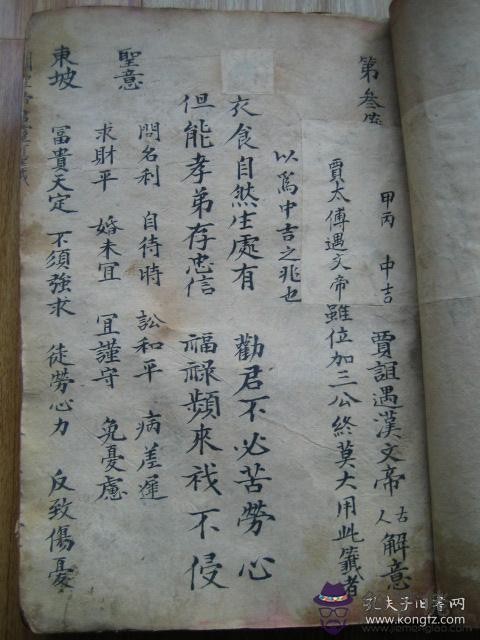 第叁签
甲丙 中吉 賈誼遇漢文帝 古人 解意
賈太傅遇文帝雖位加三公終莫大用此籤者
以為中吉之兆也
衣食自然生處有 勸君不必苦勞心
但能孝弟存忠信 福祿頻來禍不侵
聖意
問名利 自待時 訟和平 病差遲
求財平 婚未宜 宜謹守 免憂慮
東坡 冨貴天定 不須強求 徒勞心力 反致傷憂
孔夫子旧書网
www.kongfz.com